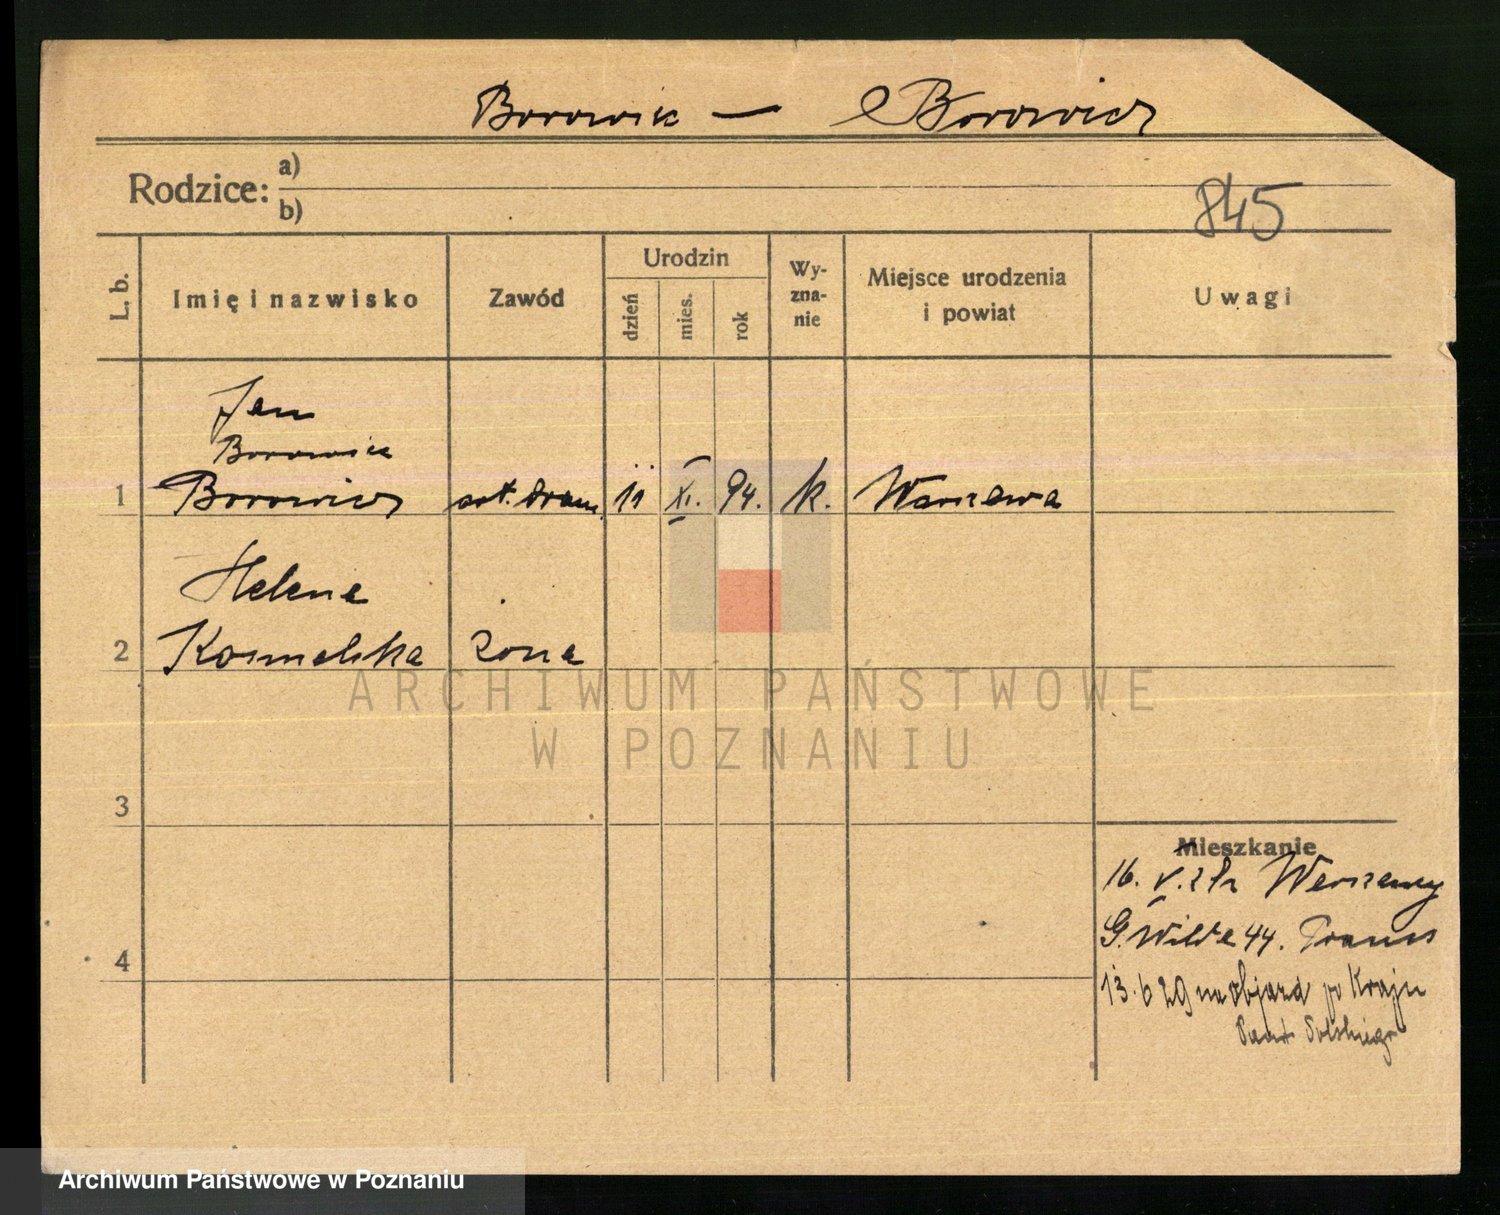 Borowik — Borowicz
Rodzice: a)
b)
845
L. b.
Imię i nazwisko
Zawód
Urodzin
dzień
mies.
rok
Wy-
zna-
nie
Miejsce urodzenia
i powiat
Uwagi
Jan
Borowik
1 Borowicz art. dram. 11 XI. 94. k. Warszawa
Helena
2 Kosmelska żona
ARCHIWUM PAŃSTWOWE
W POZNANIU
3
Mieszkanie
16. V. z Warszawy
G. Wilda 44.
4
13.6 29 na objazd po Kraju
Archiwum Państwowe w Poznaniu